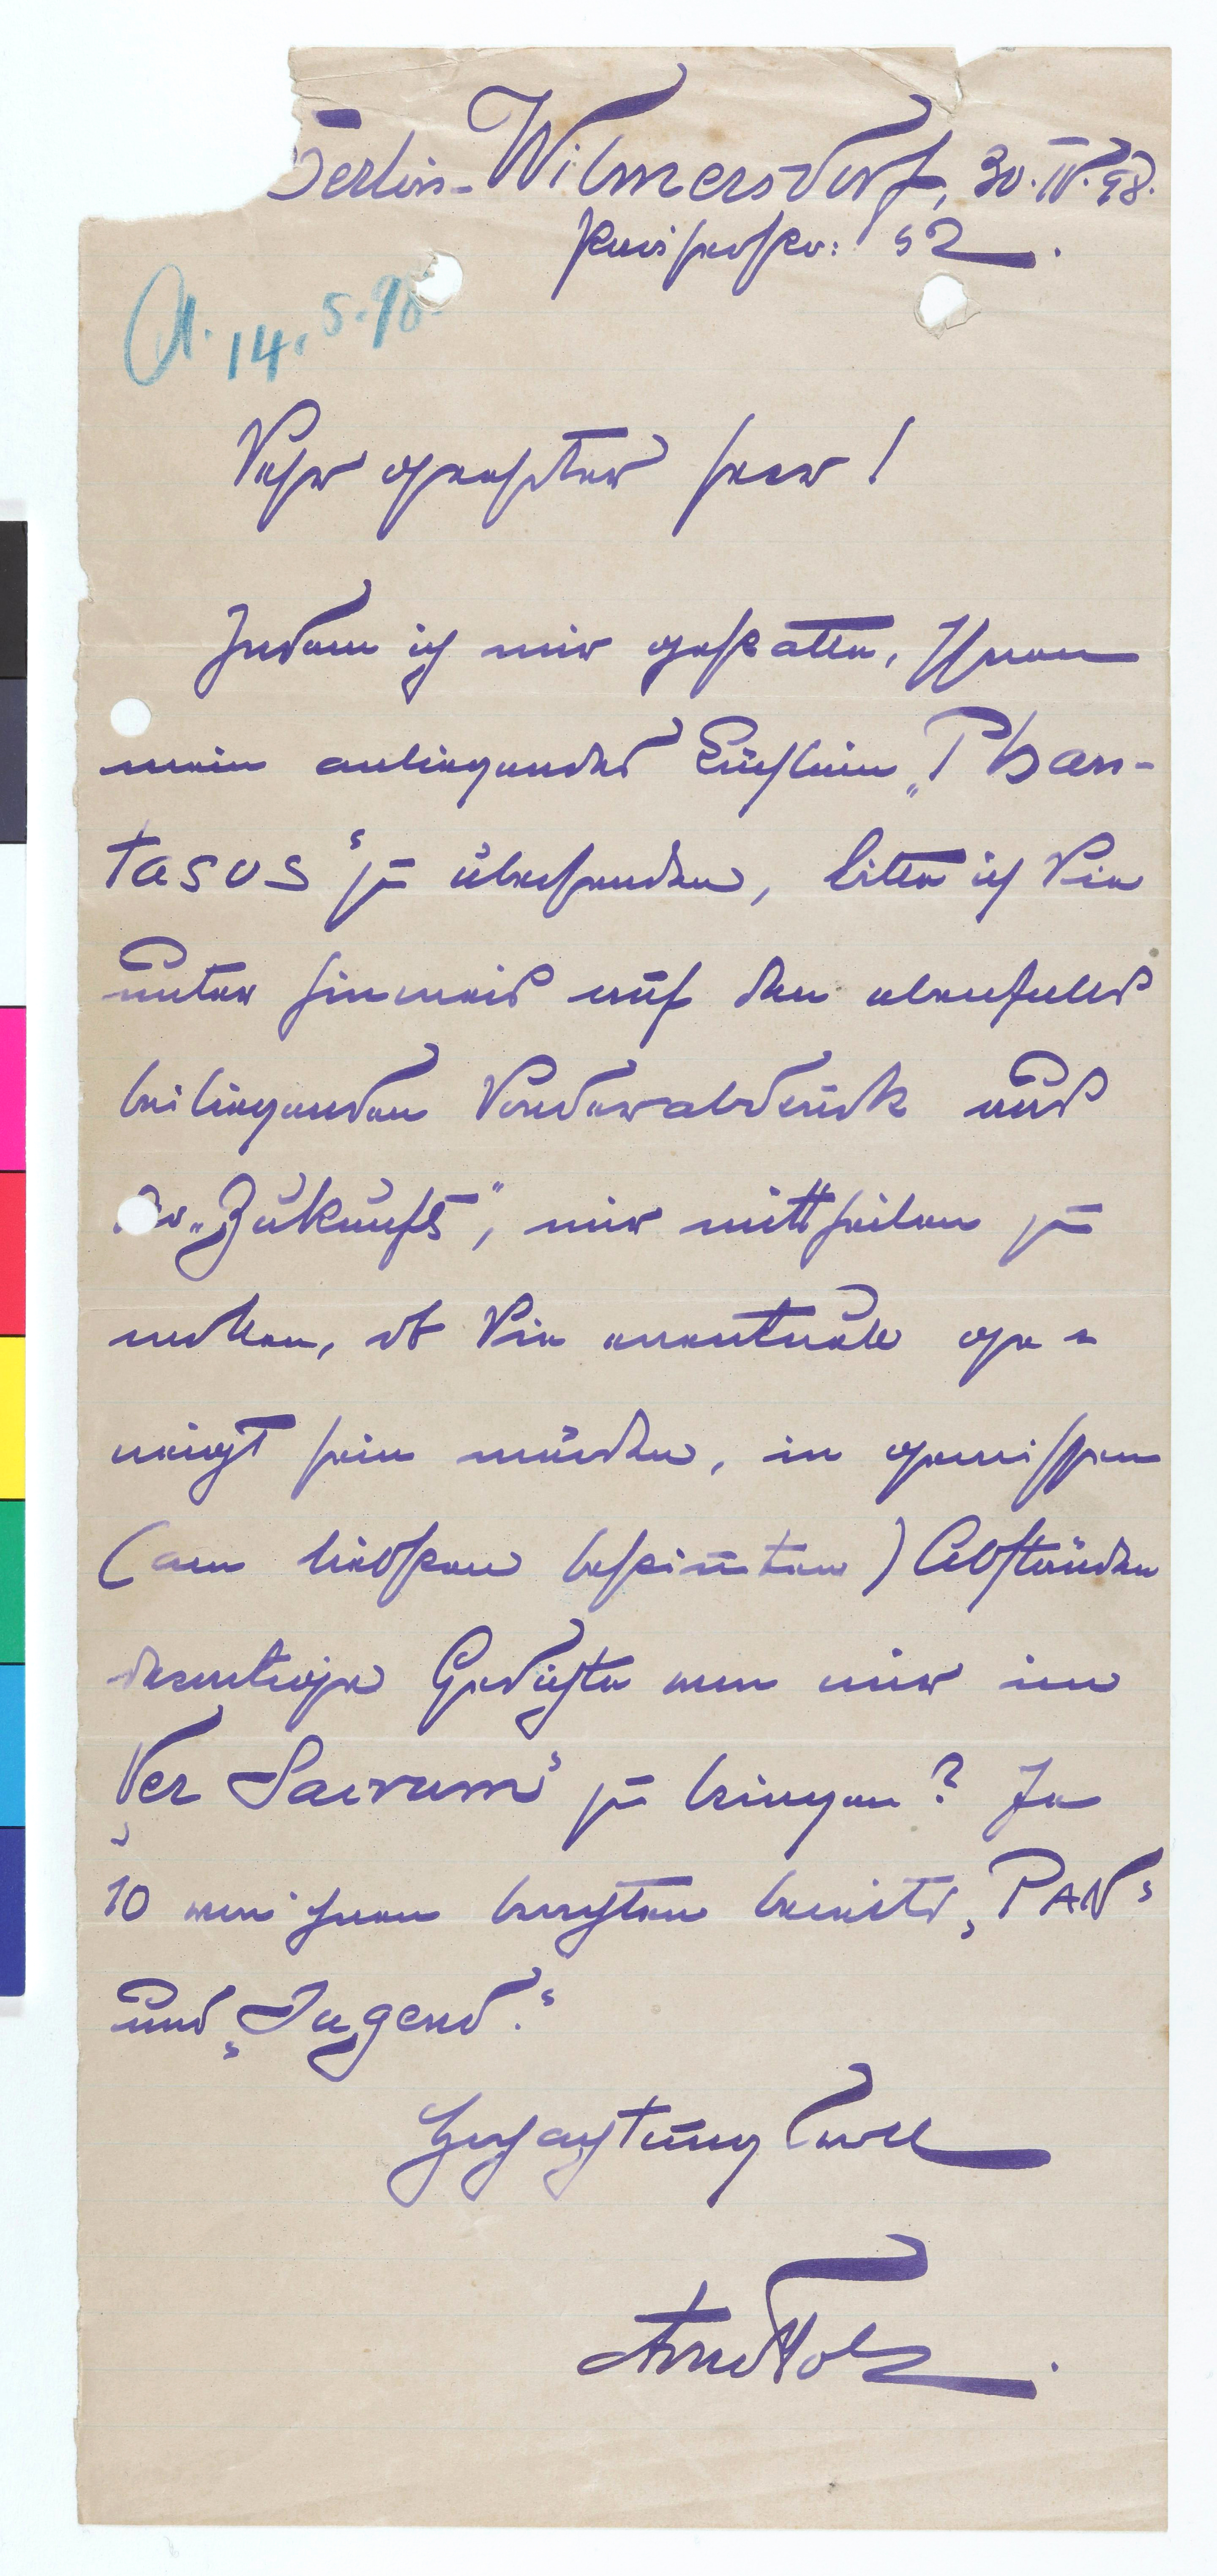 Berlin-Wilmersdorf, 30.IV.98.
Pariserstr: 52.
A. 14. 5. 98.
Sehr geehrter Herr!
Indem ich mir gestatte, Ihnen
mein anliegendes Büchlein „Phan-
tasus“ zu übersenden, bitte ich Sie
unter Hinweis auf den ebenfalls
beiliegenden Sonderabdruck aus
der „Zukunft“, mir mittheilen zu
wollen, ob Sie eventuell ge=
neigt sein würden, in gewissen
(am liebsten bestim̄ten) Abständen
derartige Gedichte von mir im
„Ver Sacrum“ zu bringen? Je
10 von ihnen brachten bereits „PAN“
und „Jugend.“
Hochachtungsvoll
Arno Holz.